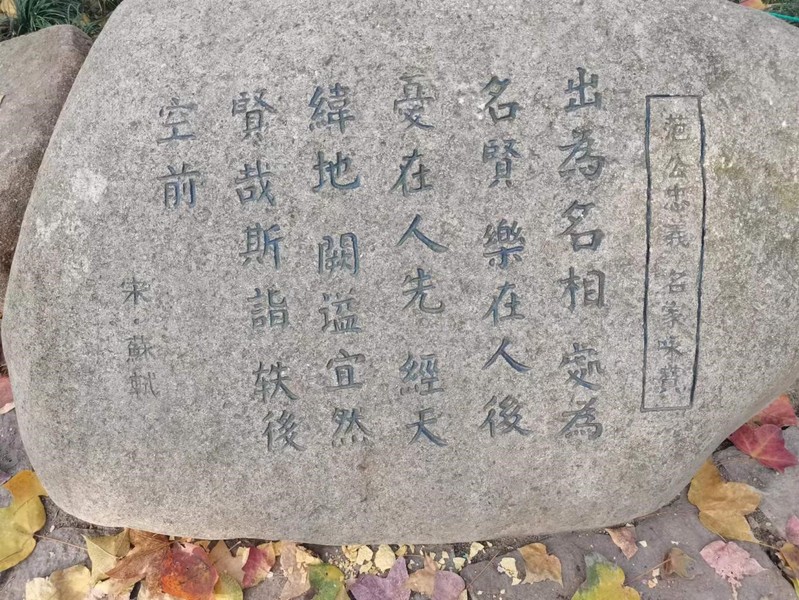 范公忠義 名家咏贊
出為名相 處為
名賢 樂在人後
憂在人先 經天
緯地 闕謚宜然
賢哉斯詣 軼後
空前
宋·蘇軾